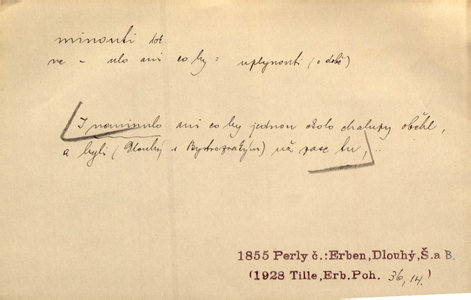 minouti dok.
ne - ulo ani co by = uplynouti (o době)
I neminulo ani co by jednou okolo chalupy oběhl,
a byli (Dlouhý s Bystrozrakým) už zase tu, ..
1855 Perly č.:Erben,Dlouhý,Š.a B.
(1928 Tille,Erb.Poh. 36,14.)